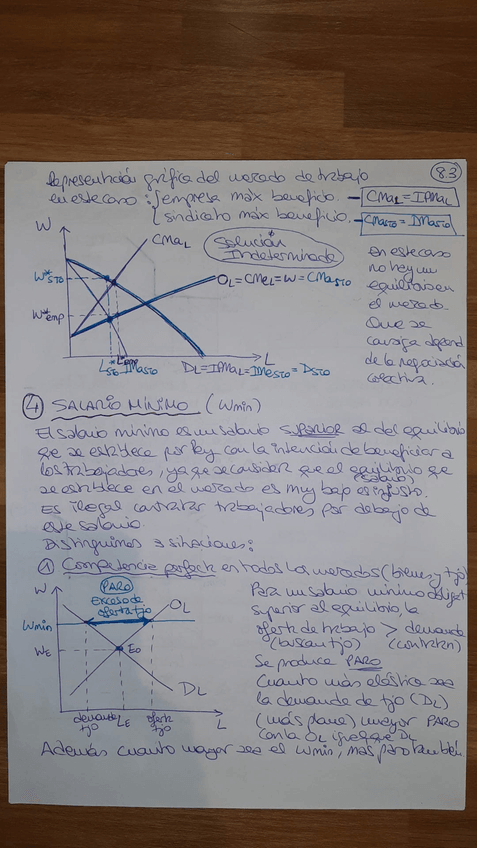 8.3
Representación gráfica del mercado de trabajo
en este caso: { empresa máx beneficio. – CMaL = IPMaL
{ sindicato máx beneficio. – CMaSTO = IMaSTO
W
CMaL
Solución
Indeterminada
W*STO
OL = CMeL = W = CMaSTO
W*emp
L*STO L*emp IMaSTO
L
DL = IPMaL = IMeSTO = DSTO
En este caso
no hay un
equilibrio en
el mercado.
Que se
consiga depend
de la negociación
colectiva.
4 SALARIO MÍNIMO (Wmin)
El salario mínimo es un salario superior al del equilibrio
que se establece por ley con la intención de beneficiar a
los trabajadores, ya que se considera que el equilibrio que
(salario)
se establece en el mercado es muy bajo e injusto.
Es ilegal contratar trabajadores por debajo de
este salario.
Distinguimos 3 situaciones:
1 Competencia perfecta en todos los mercados (bienes y tjo)
W
PARO
Exceso de
oferta tjo
OL
Wmin
WE
E0
DL
demanda
tjo
LE
oferta
tjo
L
Para un salario mínimo
superior al equilibrio, la
oferta de trabajo > demanda
(buscan tjo) (contratan)
Se produce PARO
Cuanto más elástica sea
la demanda de tjo (DL)
(más plana) mayor PARO
con la OL igual que DL
Además cuanto mayor sea el Wmin, más paro también.